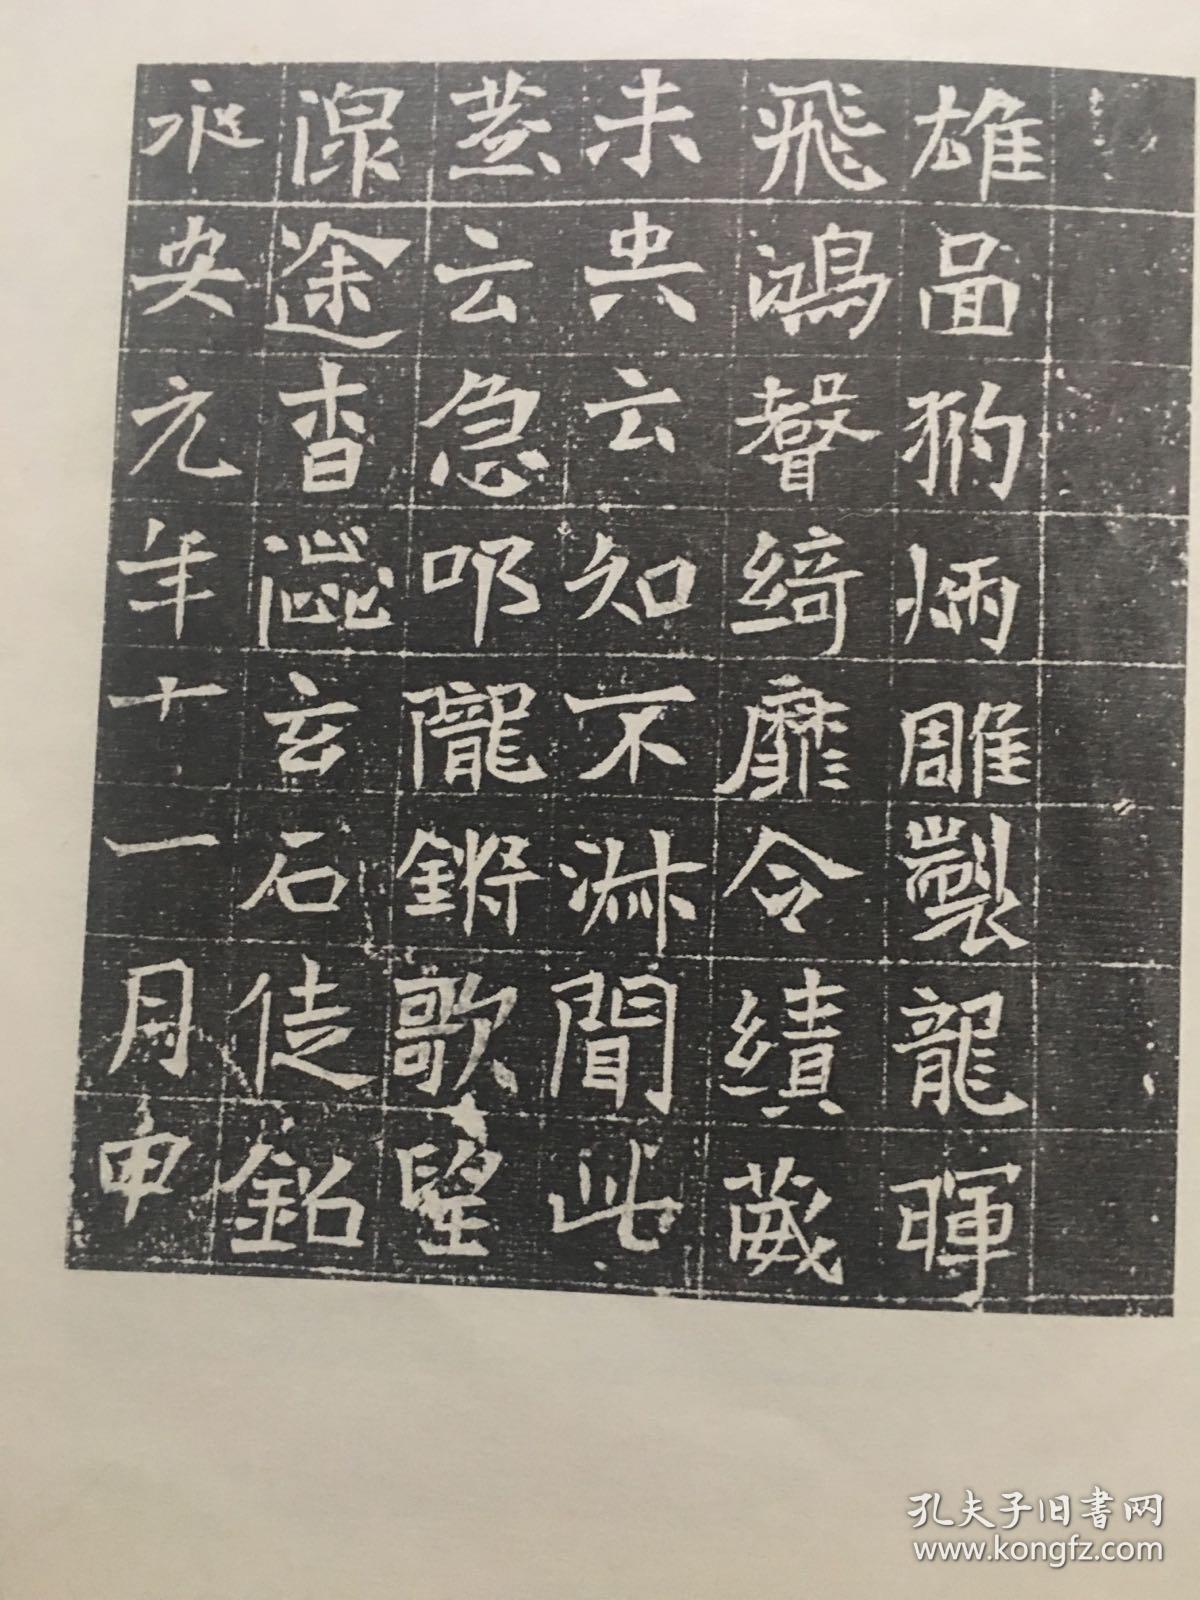 雄啚犳炳雕製龍暉
飛鴻聲綺靡令績葳
未央云知不淑聞此
云急叩隴鏘歌望
途杳澁玄石徒銘
永安元年十一月申
孔夫子旧書网
www.kongfz.com